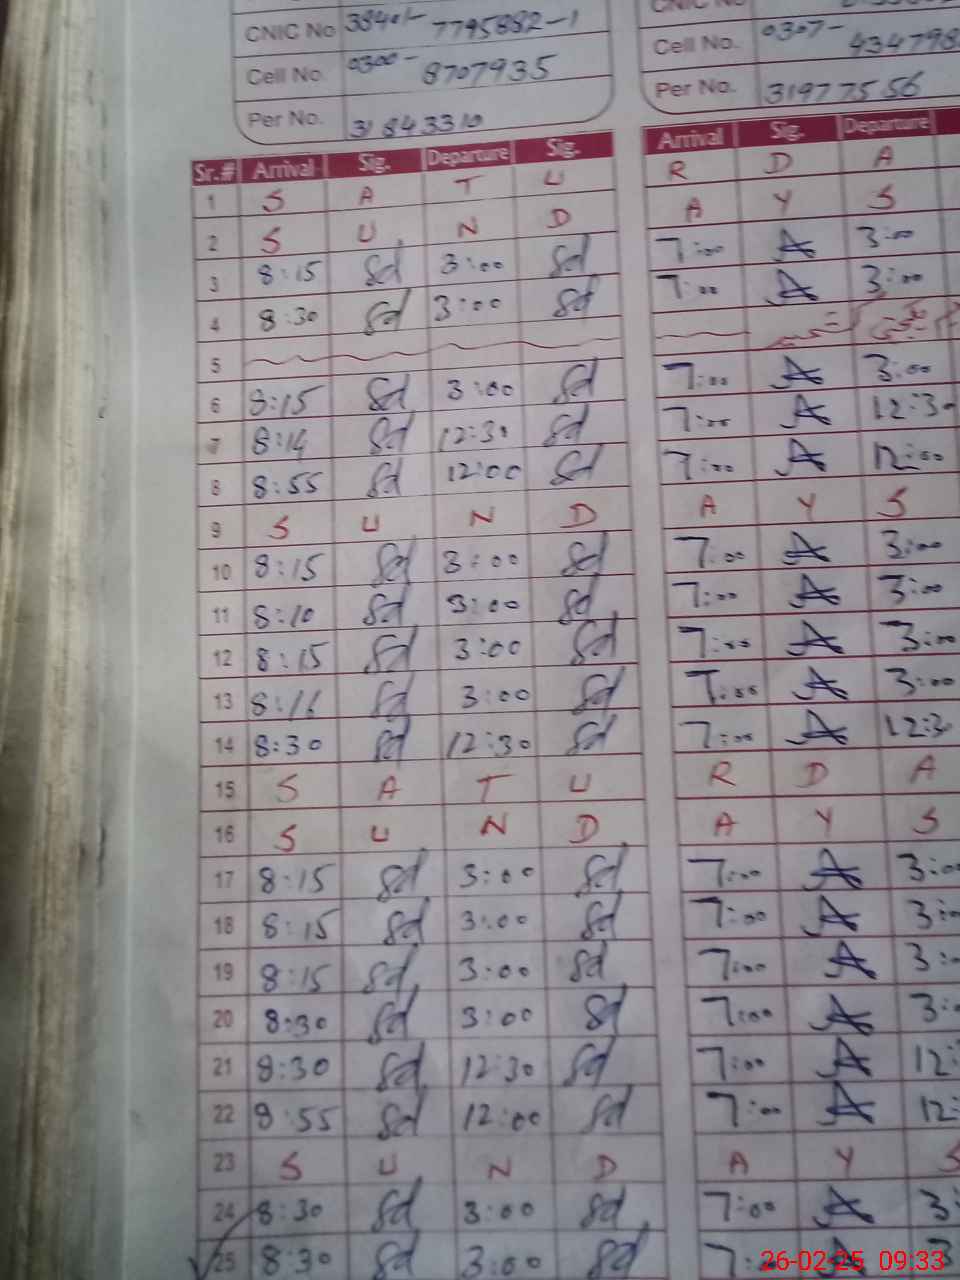 CNIC No 38401-7795882-1 CNIC No
Cell No. 0300-8707935 Cell No. 0307-434798
Per No. 31843310 Per No. 31977556
Sr.# Arrival Sig. Departure Sig. Arrival Sig. Departure
1 S A T U R D A
2 S U N D A Y S
3 8:15 Sd 3:00 Sd 7:00 A 3:00
4 8:30 Sd 3:00 Sd 7:00 A 3:00
5
6 8:15 Sd 3:00 Sd 7:00 A 3:00
7 8:14 Sd 12:30 Sd 7:00 A 12:30
8 8:55 Sd 12:00 Sd 7:00 A 12:00
9 S U N D A Y S
10 8:15 Sd 3:00 Sd 7:00 A 3:00
11 8:10 Sd 3:00 Sd 7:00 A 3:00
12 8:15 Sd 3:00 Sd 7:00 A 3:00
13 8:16 Sd 3:00 Sd 7:00 A 3:00
14 8:30 Sd 12:30 Sd 7:00 A 12:3
15 S A T U R D A
16 S U N D A Y S
17 8:15 Sd 3:00 Sd 7:00 A 3:00
18 8:15 Sd 3:00 Sd 7:00 A 3:0
19 8:15 Sd 3:00 Sd 7:00 A 3:
20 8:30 Sd 3:00 Sd 7:00 A 3:
21 8:30 Sd 12:30 Sd 7:00 A 12:
22 8:55 Sd 12:00 Sd 7:00 A 12:
23 S U N D A Y S
24 8:30 Sd 3:00 Sd 7:00 A 3:
25 8:30 Sd 3:00 Sd 7: 3
26-02-25 09:33